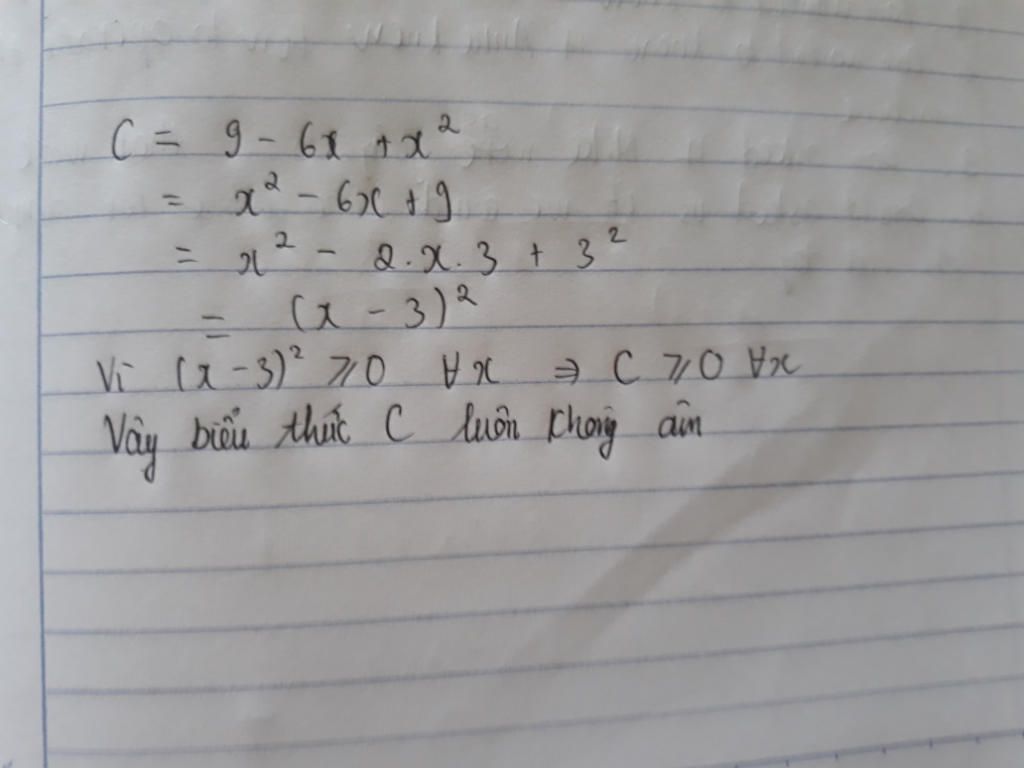 C = 9 - 6x + x²
= x² - 6x + 9
= x² - 2.x.3 + 3²
= (x - 3)²
Vì (x - 3)² ⩾ 0 ∀x ⇒ C ⩾ 0 ∀x
Vậy biểu thức C luôn không âm